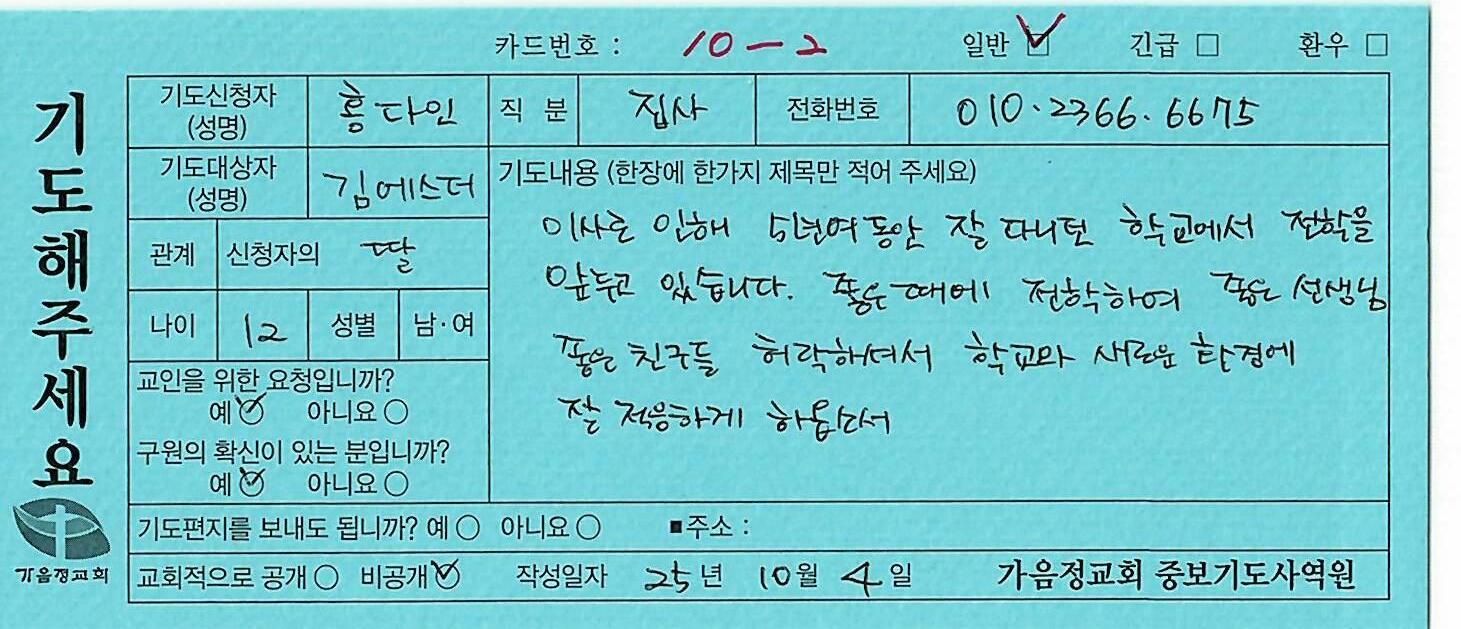 카드번호 : 10-2 일반 ☑ 긴급 □ 환우 □
기도해주세요
기도신청자 (성명) 홍다인 직 분 집사 전화번호 010·2366·6675
기도대상자 (성명) 김에스더
관계 신청자의 딸
나이 12 성별 남·여
교인을 위한 요청입니까?
예 ☑ 아니요 ○
구원의 확신이 있는 분입니까?
예 ☑ 아니요 ○
기도내용 (한장에 한가지 제목만 적어 주세요)
이사로 인해 5년여동안 잘 다니던 학교에서 전학을
앞두고 있습니다. 좋은때에 전학하여 좋은 선생님
좋은 친구들 허락하셔서 학교와 새로운 환경에
잘 적응하게 하옵소서
기도편지를 보내도 됩니까? 예 ○ 아니요 ○ ■주소 :
교회적으로 공개 ○ 비공개 ☑ 작성일자 25년 10월 4일 가음정교회 중보기도사역원
가음정교회